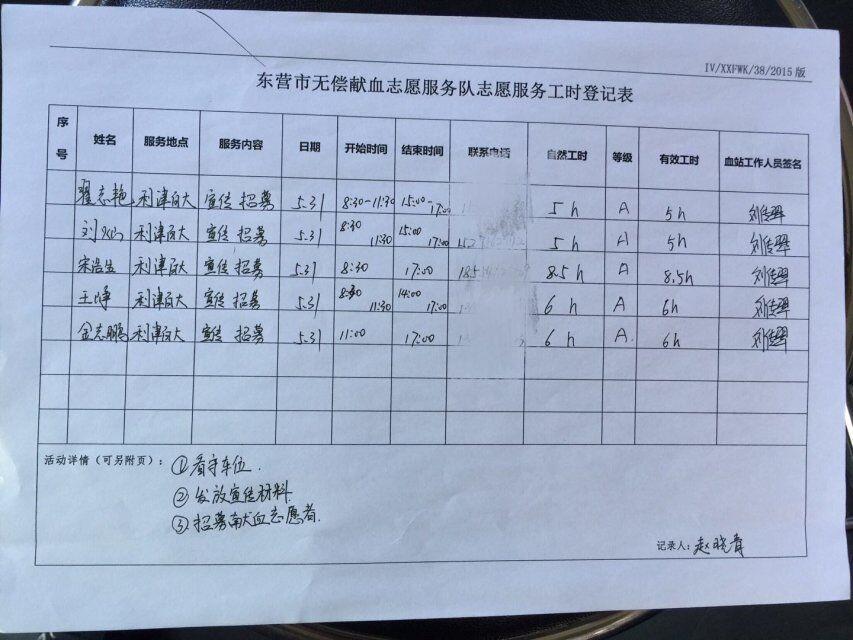 IV/XXFWK/38/2015 版
东营市无偿献血志愿服务队志愿服务工时登记表
序号 姓名 服务地点 服务内容 日期 开始时间 结束时间 联系电话 自然工时 等级 有效工时 血站工作人员签名
翟志艳 利津百大 宣传 招募 5.31 8:30-11:30 15:00-17:00 5h A 5h
刘 利津百大 宣传 招募 5.31 8:30 11:30 15:00 17:00 5h A 5h
宋浩生 利津百大 宣传 招募 5.31 8:30 17:00 8.5h A 8.5h
王峥 利津百大 宣传 招募 5.31 8:30 11:30 14:00 17:00 6h A 6h
金志鹏 利津百大 宣传 招募 5.31 11:00 17:00 6h A. 6h
活动详情（可另附页）： ①看守车位.
②发放宣传材料
③招募献血志愿者.
记录人: 赵晓青